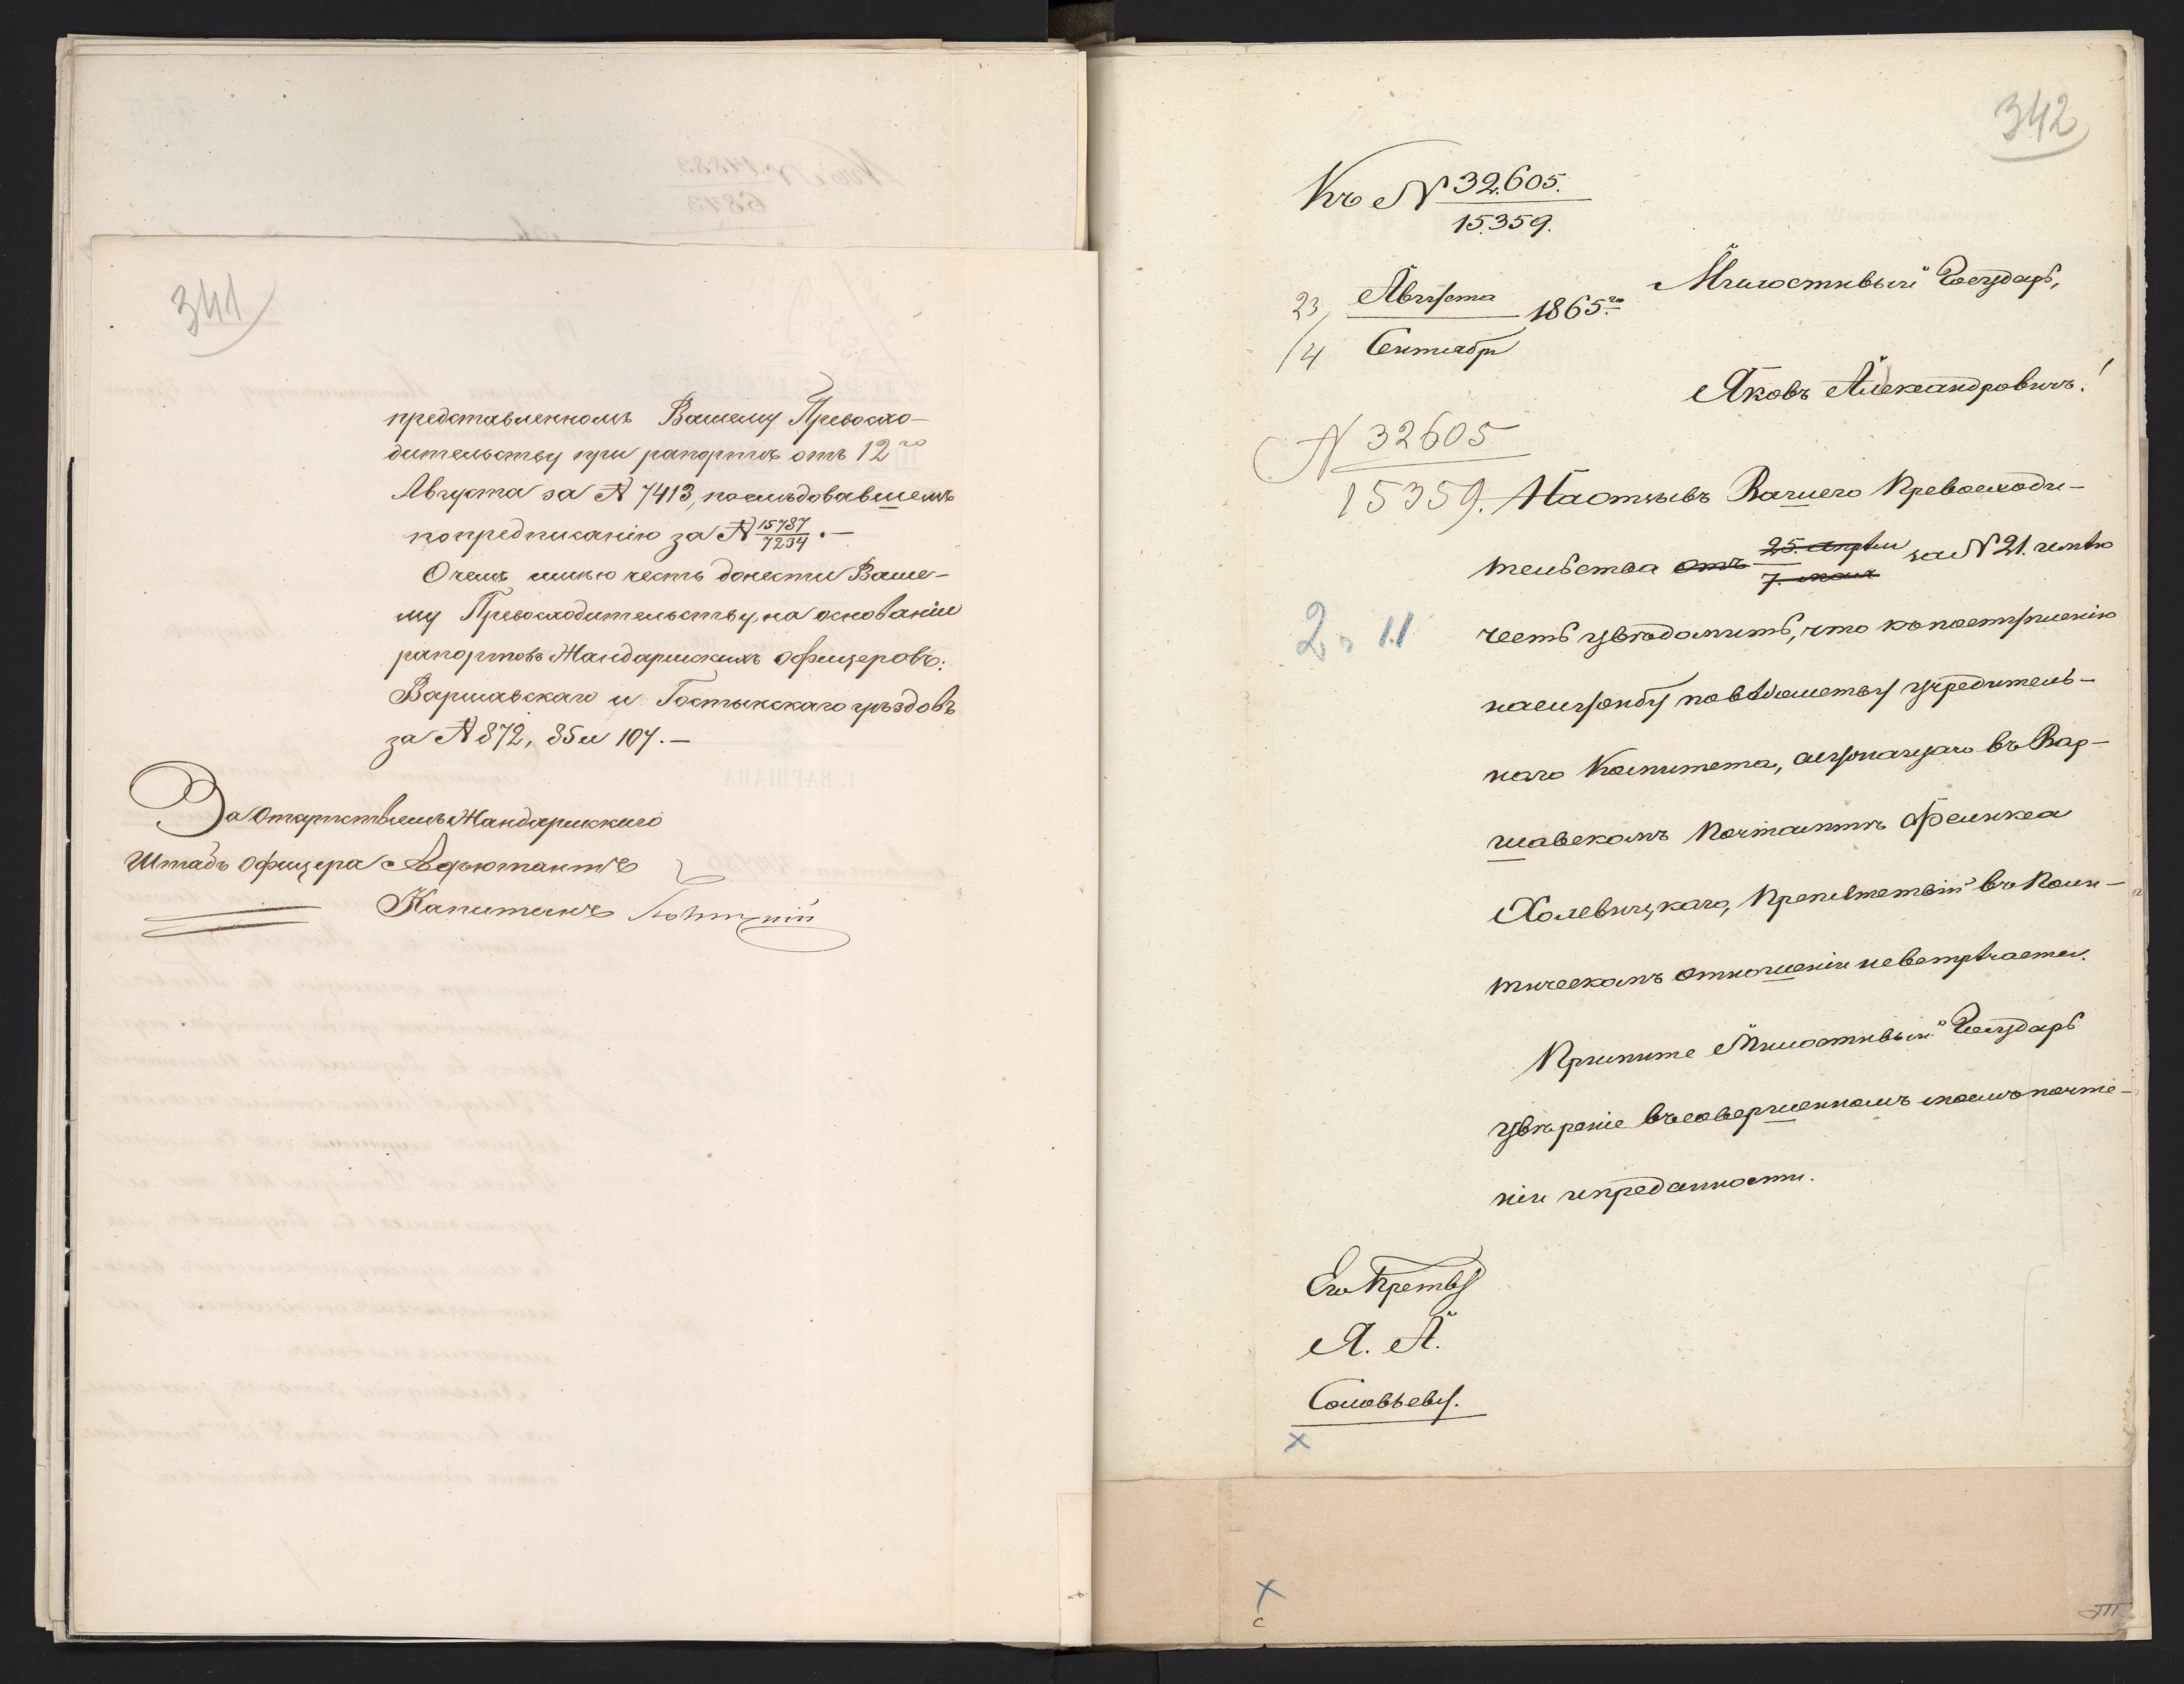 341
представленномъ Вашему Превосхо-
дительству при рапортѣ отъ 12го
Августа за № 7413, послѣдовавшемъ
по предписанію за № 15787/7234. —
О чемъ имѣю честь донести Ваше-
му Превосходительству, на основаніи
рапортовъ Жандармскихъ офицеровъ:
Варшавскаго и Гостынскаго уѣздовъ
за № 872, 85 и 107. —
За отсутствіемъ Жандармскаго
Штабъ Офицера Адъютантъ
Капитанъ
342
Къ № 32605.
15359.
23/4 Августа/Сентября 1865го
Милостивый Государь,
Яковъ Александровичъ!
№ 32605
15359.
На отзывъ Вашего Превосходи-
тельства отъ 25. апрѣля/7. мая за № 21. имѣю
честь увѣдомить, что къ поступленію
на службу по вѣдомству Учредитель-
наго Комитета, служащаго въ Вар-
шавскомъ Почтамтѣ Феликса
Холевицкаго, препятствій въ поли-
тическомъ отношеніи не встрѣчается.
Примите Милостивый Государь
увѣреніе въ совершенномъ моемъ почте-
ніи и преданности.
Его Прев-тву
Я. А.
Соловьеву.